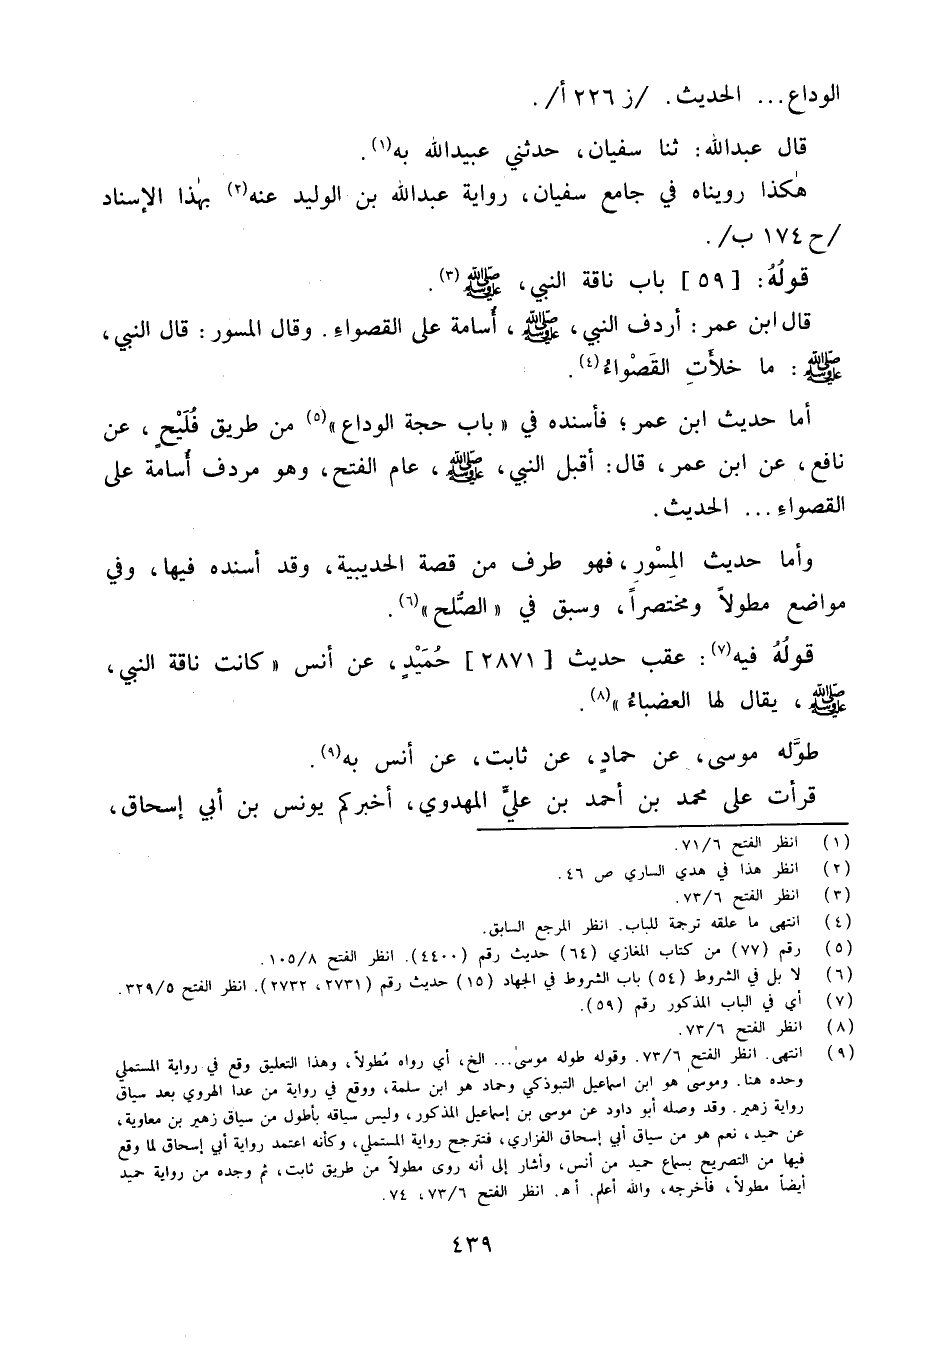 الوداع... الحديث. /ز ٢٢٦ أ/.
قال عبدالله: ثنا سفيان، حدثني عبيدالله به(١).
هٰكذا رويناه في جامع سفيان، رواية عبدالله بن الوليد عنه(٢) بهٰذا الإسناد
/ح ١٧٤ ب/.
قولُهُ: [٥٩] باب ناقة النبي، ﷺ(٣).
قال ابن عمر: أردف النبي، ﷺ، أُسامة على القصواءِ. وقال المسور: قال النبي،
ﷺ: ما خلأَتِ القَصْواءُ(٤).
أما حديث ابن عمر؛ فأسنده في «باب حجة الوداع»(٥) من طريق فُلَيْحٍ، عن
نافع، عن ابن عمر، قال: أقبل النبي، ﷺ، عام الفتح، وهو مردف أُسامة على
القصواءِ... الحديث.
وأما حديث المِسْوَرِ، فهو طرف من قصة الحديبية، وقد أسنده فيها، وفي
مواضع مطولاً ومختصراً، وسبق في «الصُّلح»(٦).
قولُهُ فيه(٧): عقب حديث [٢٨٧١] حُمَيْدٍ، عن أنس «كانت ناقة النبي،
ﷺ، يقال لها العضباءُ»(٨).
طوَّله موسى، عن حمادٍ، عن ثابت، عن أنس به(٩).
قرأت على محمد بن أحمد بن عليٍّ المهدوي، أخبركم يونس بن أبي إسحاق،
(١) انظر الفتح ٧١/٦.
(٢) انظر هذا في هدي الساري ص ٤٦.
(٣) انظر الفتح ٧٣/٦.
(٤) انتهى ما علقه ترجمة للباب. انظر المرجع السابق.
(٥) رقم (٧٧) من كتاب المغازي (٦٤) حديث رقم (٤٤٠٠). انظر الفتح ١٠٥/٨.
(٦) لا بل في الشروط (٥٤) باب الشروط في الجهاد (١٥) حديث رقم (٢٧٣١، ٢٧٣٢). انظر الفتح ٣٢٩/٥.
(٧) أي في الباب المذكور رقم (٥٩).
(٨) انظر الفتح ٧٣/٦.
(٩) انتهى. انظر الفتح ٧٣/٦. وقوله طوله موسىٰ... الخ، أي رواه مُطولاً، وهذا التعليق وقع في رواية المستملي
وحده هنا. وموسى هو ابن اسماعيل التبوذكي وحماد هو ابن سلمة، ووقع في رواية من عدا الهروي بعد سياق
رواية زهير. وقد وصله أبو داود عن موسى بن إسماعيل المذكور، وليس سياقه بأطول من سياق زهير بن معاوية،
عن حميد، نعم هو من سياق أبي إسحاق الفزاري، فتترجح رواية المستملي، وكأنه اعتمد رواية أبي إسحاق لما وقع
فيها من التصريح بسماع حميد من أنس، وأشار إلى أنه روى مطولاً من طريق ثابت، ثم وجده من رواية حميد
أيضاً مطولاً، فأخرجه، والله أعلم. أ هـ. انظر الفتح ٧٣/٦، ٧٤.
٤٣٩